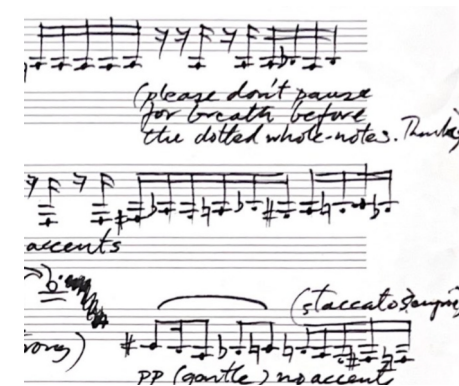 (please don't pause
for breath before
the dotted whole-notes. Thanks
accents
(staccato sempre
pp (gentle) no accents